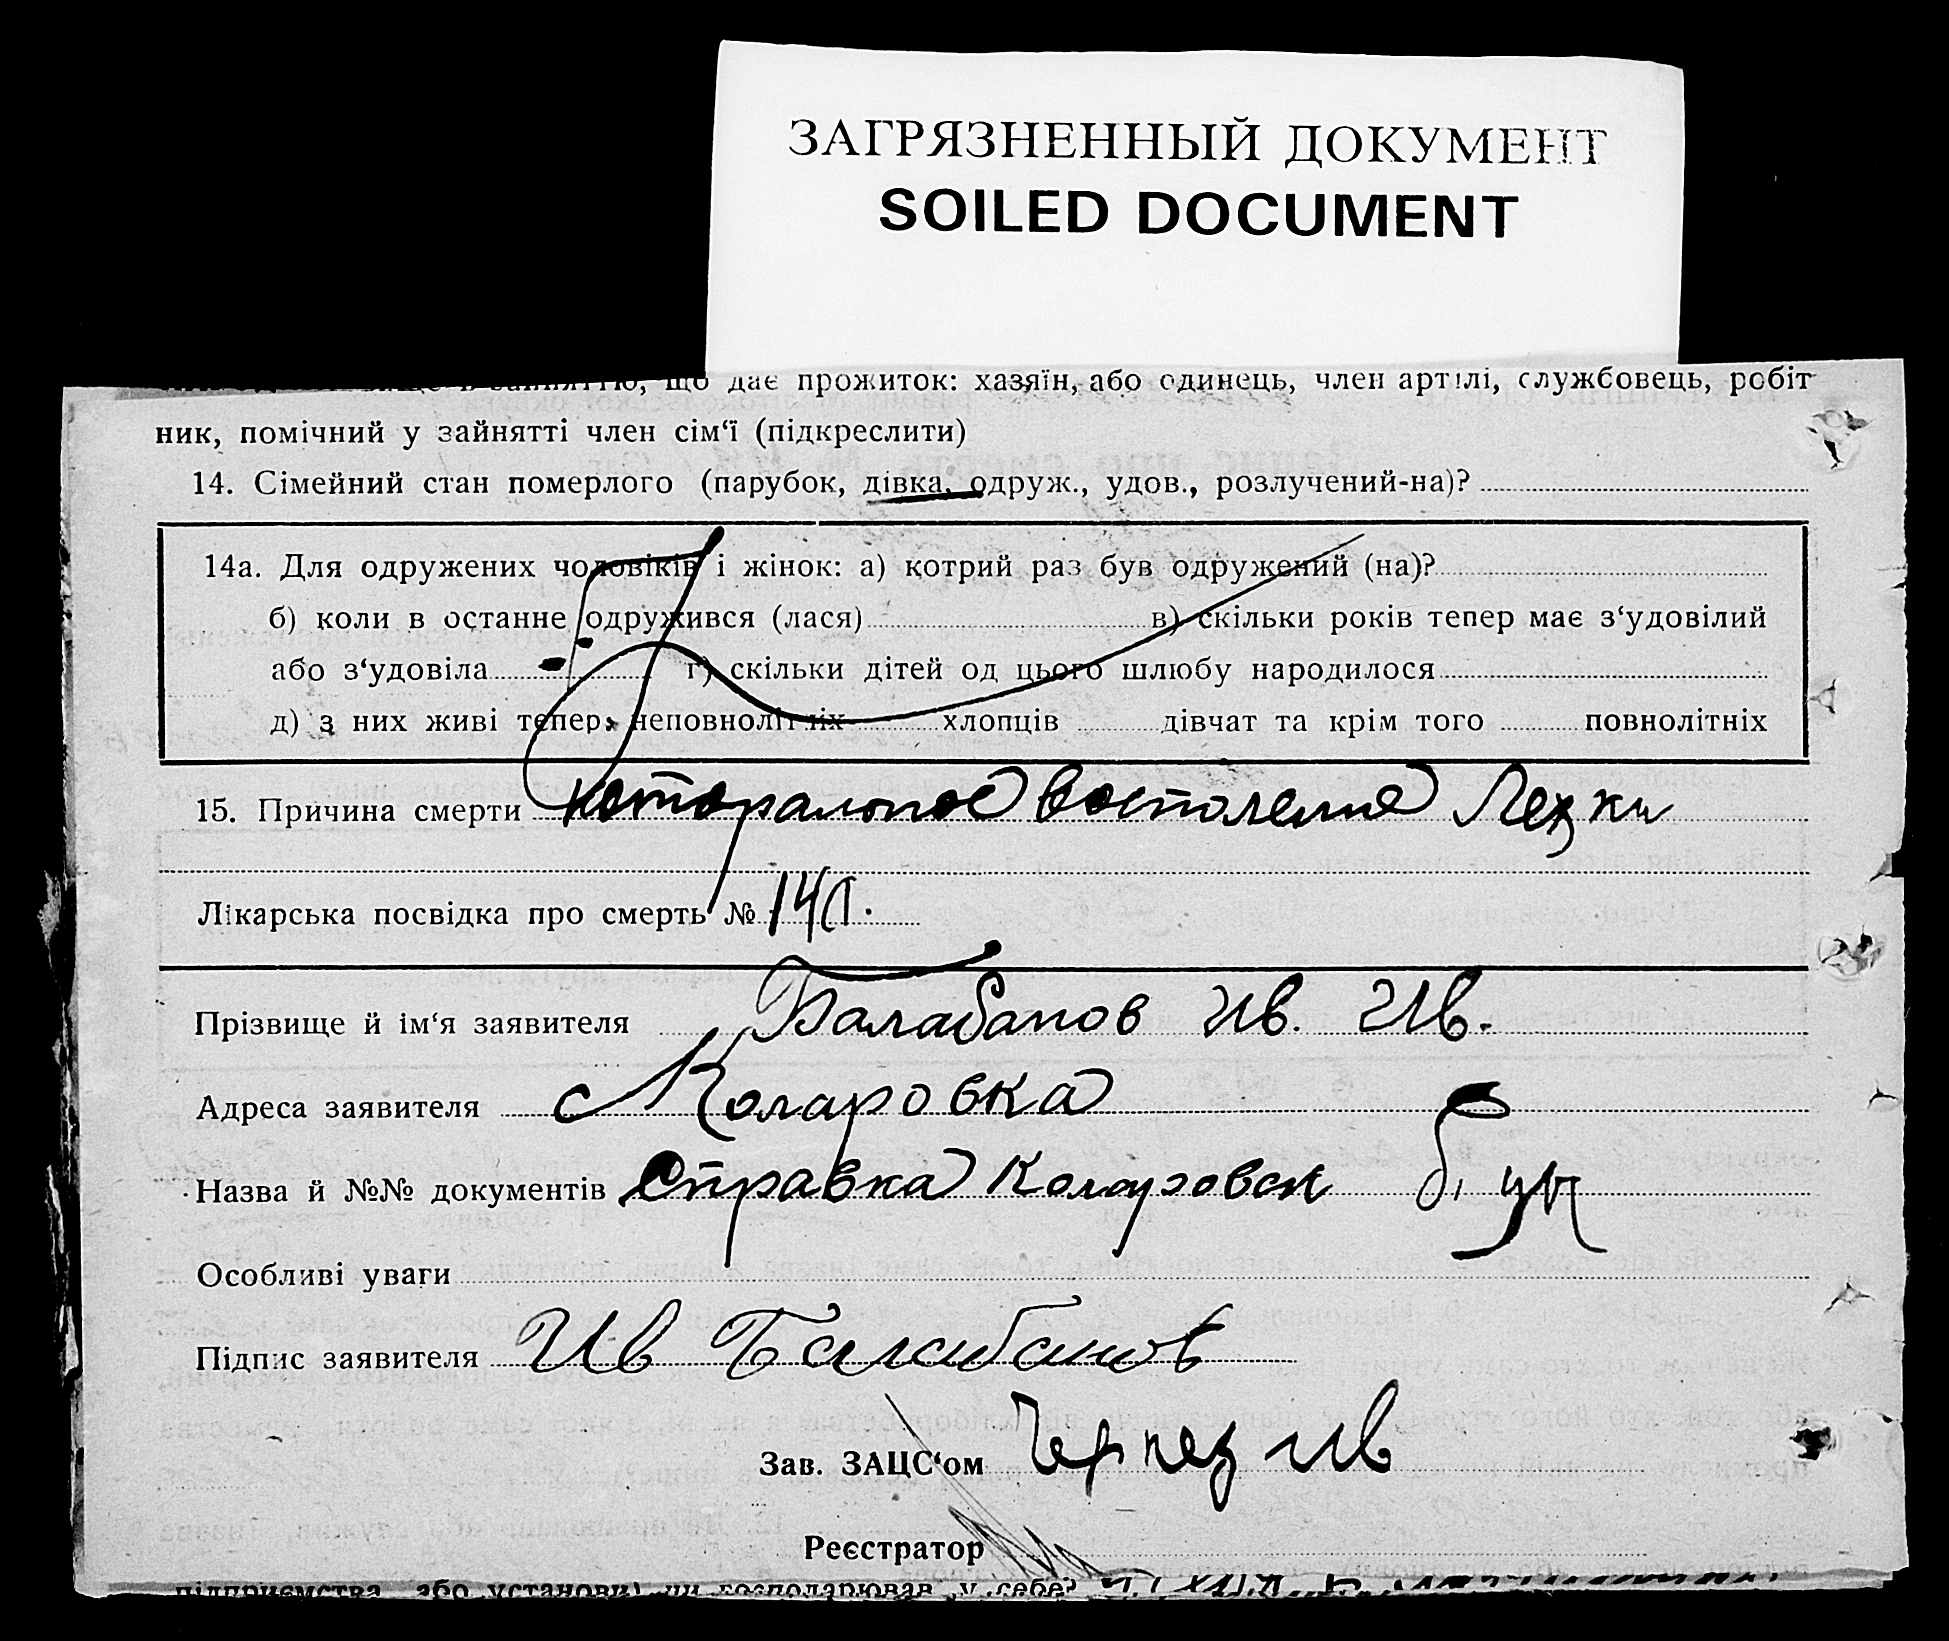 ЗАГРЯЗНЕННЫЙ ДОКУМЕНТ
SOILED DOCUMENT
що дає прожиток: хазяїн, або одинець, член артілі, службовець, робіт
ник, помічний у зайнятті член сім‘ї (підкреслити)
14. Сімейний стан померлого (парубок, дівка, одруж., удов., розлучений-на)?
14а. Для одружених чоловіків і жінок: а) котрий раз був одружений (на)?
б) коли в останне одружився (лася) в) скільки років тепер має з‘удовілий
або з‘удовіла г) скільки дітей од цього шлюбу народилося
д) з них живі тепер: неповнолітніх хлопців дівчат та крім того повнолітніх
15. Причина смерти катаральное восполение
Лікарська посвідка про смерть №
Прізвище й ім‘я заявителя Балабанов Ив. Ив.
Адреса заявителя с Коларовка
Назва й №№ документів Справка Коларовск
Особливі уваги
Підпис заявителя Ив Балабанов
Зав. ЗАЦС‘ом Ив
Реєстратор
підприємства або установи) чи господарював у себе?